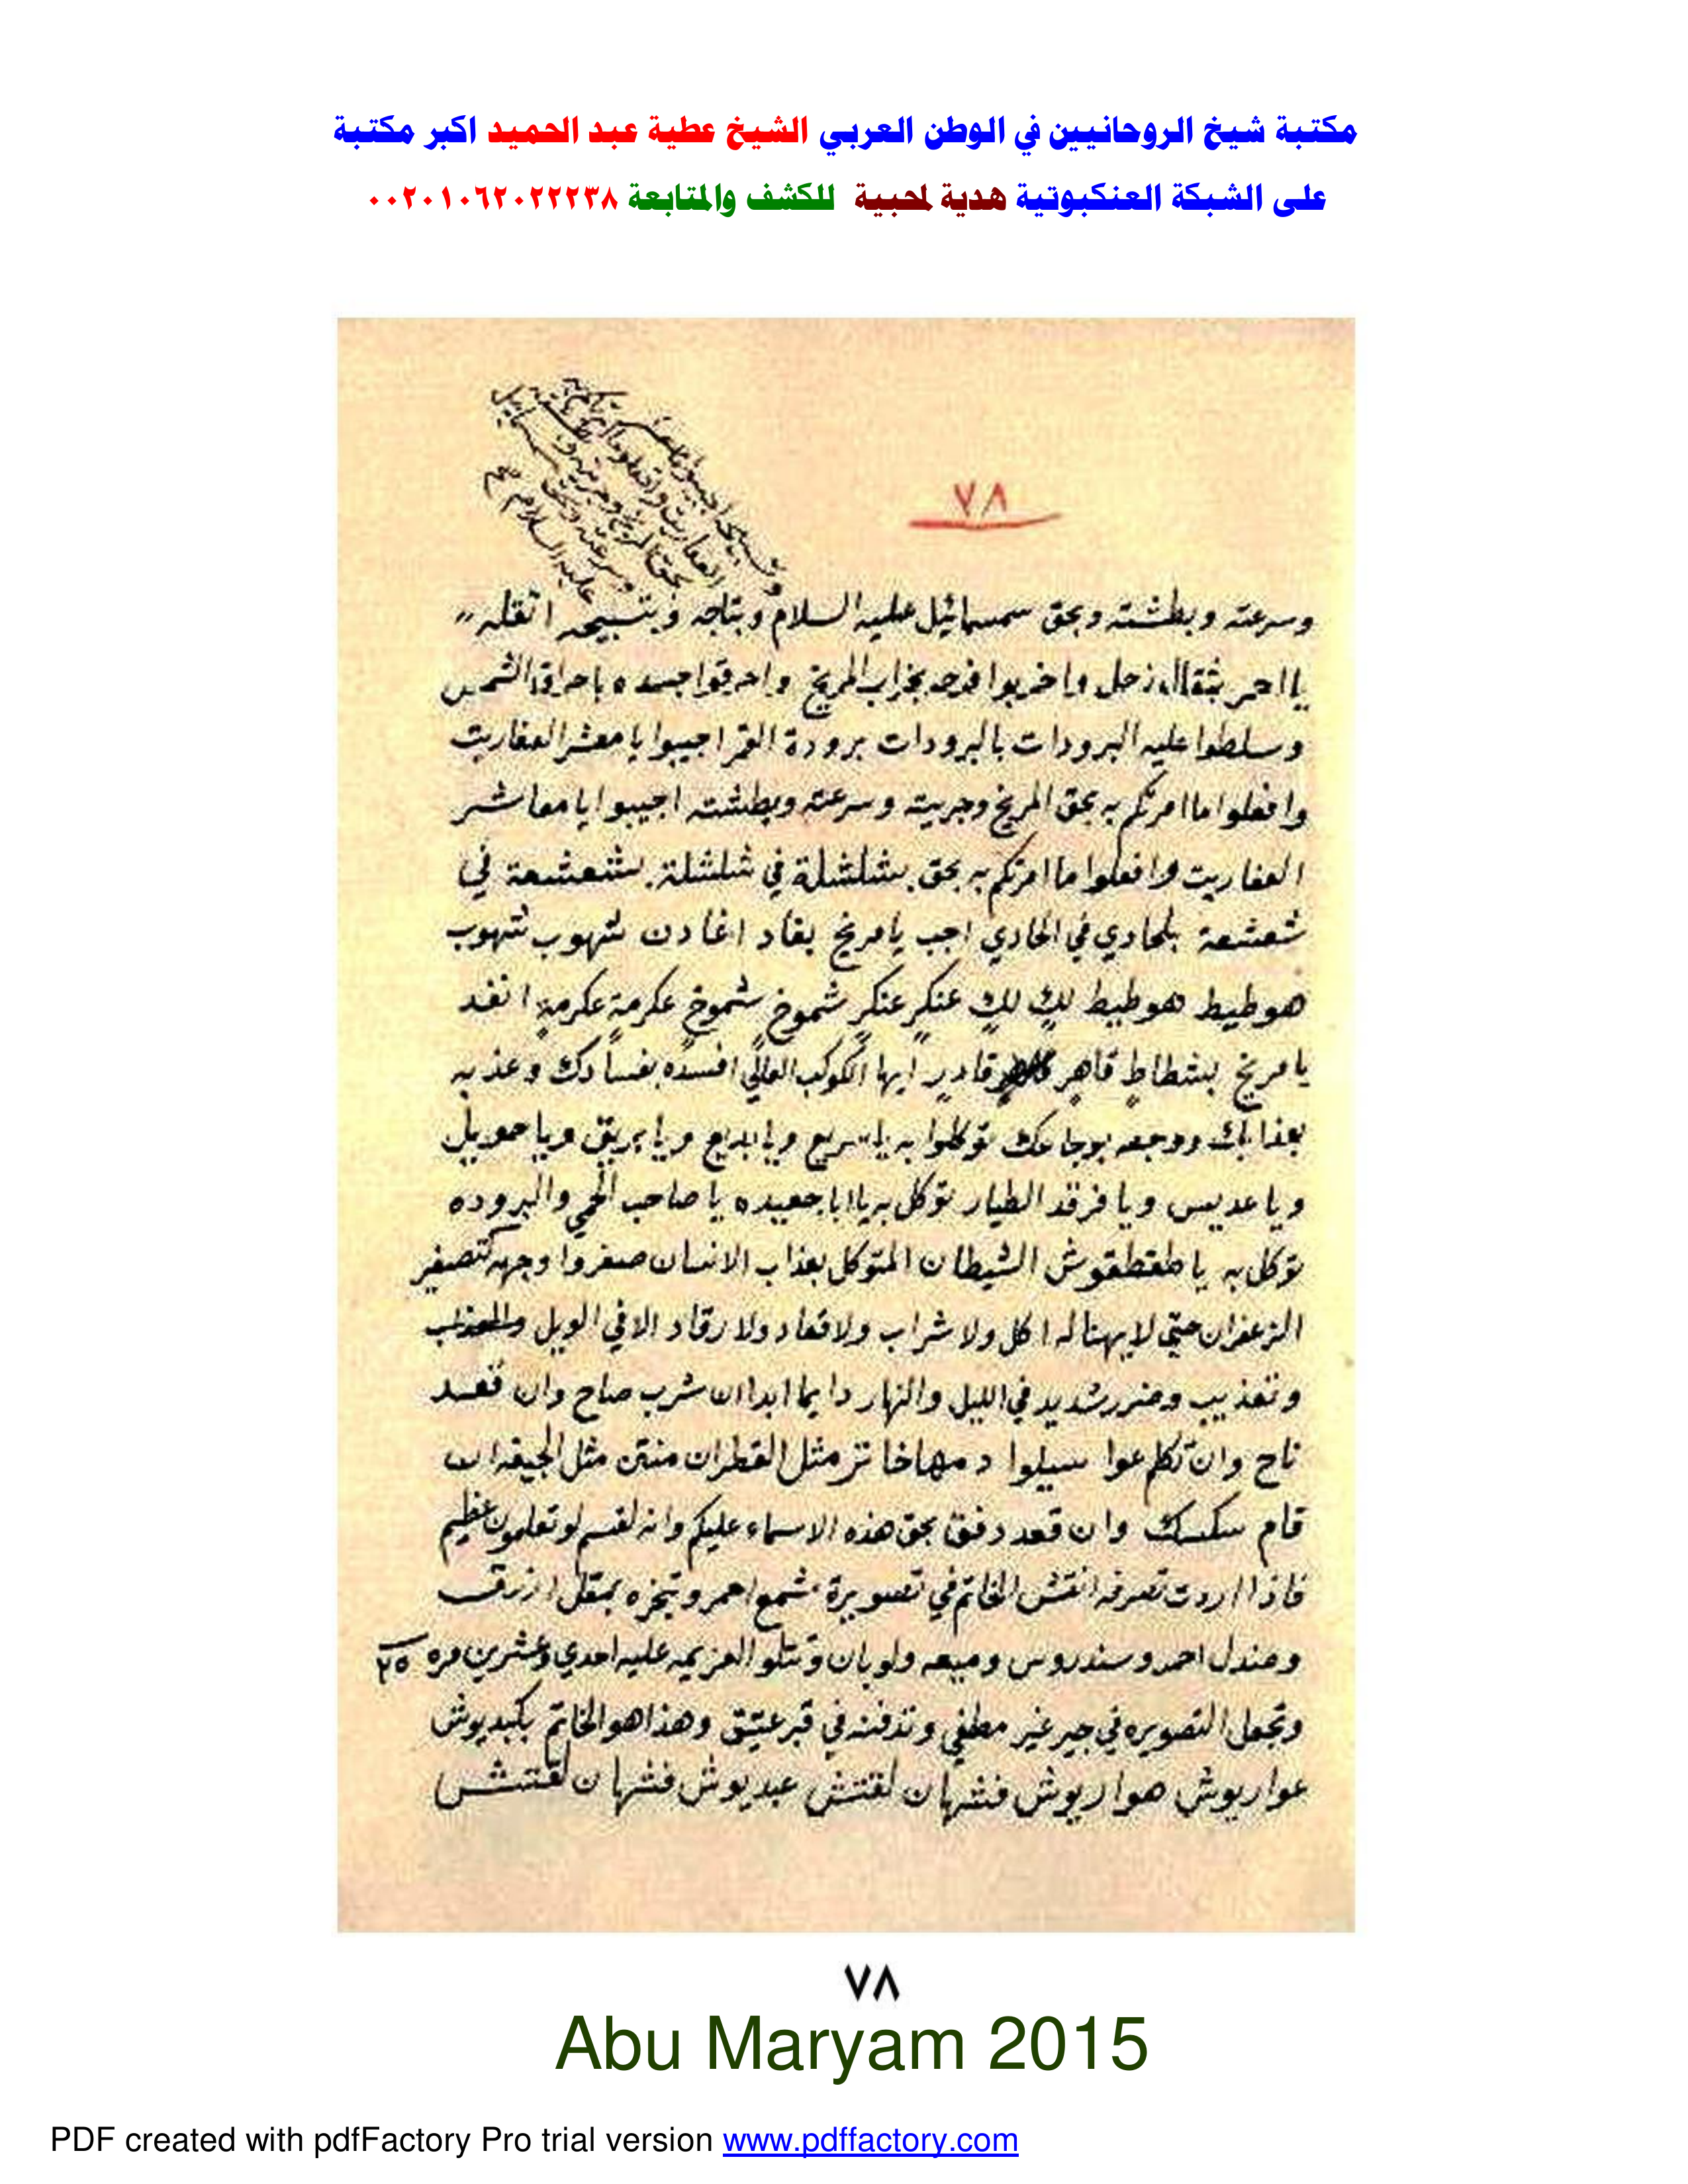 مكتبة شيخ الروحانيين في الوطن العربي الشيخ عطية عبد الحميد اكبر مكتبة
على الشبكة العنكبوتية هدية لمحبية للكشف والمتابعة ٠٠٢٠١٠٦٢٠٢٢٢٣٨
٧٨
وسرعته وبطشته وبحق سمسمائيل عليه السلام وبتاجه وبتسبيحه اثقله
يا احمر بثقال زحل واخربوا فرحه بخراب المريخ واحرقوا جسده باحراق الشمس
وسلطوا عليه البرودات بالبرودات برودة القمر اجيبوا يا معشر العفاريت
وافعلوا ما امرتكم به بحق المريخ وجريته وسرعته وبطشته اجيبوا يا معاشر
العفاريت وافعلوا ما امرتكم به بحق بشلشلة في شلشلة بشعشعة في
شعشعة بلحادي في الحادي اجب يا مريخ بقاد اغادن شهوب شهوب
هوطيط هوطيط لكٍ لكٍ عنكرٍ عنكرٍ شموخٍ شموخٍ عكرمةٍ عكرمةٍ انفد
يا مريخ بشطاطٍ قاهرٍ قادرٍ ايها الكوكب العالي افسده بفسادك وعذبه
بعذابك ووجعه بوجاعك توكلوا به يا سريع ويا بديع ويا بريق ويا حمويل
ويا عديس ويا فرقد الطيار توكل به يا ابا جعيده يا صاحب الحمي والبروده
توكل به يا طقطقوش الشيطان المتوكل بعذاب الانسان صفروا وجهه كتصفير
الزعفران حتي لا يهنا له اكل ولا شراب ولا قعاد ولا رقاد الا في الويل والعذاب
وتعذيب وضرر شديد في الليل والنهار دايما ابدا ان شرب صاح وان قعد
ناح وان تكلم عوا سيلوا دمها خاثر مثل القطران منتن مثل الجيفه ان
قام سكسك وان قعد دفق بحق هذه الاسماء عليكم وانه لقسم لو تعلمون عظيم
فاذا اردت تصرفه انقش الخاتم في تصويرة شمع احمر وتبخره بمقل ازرق
وصندل احمر وسندروس وميعه ولوبان وتتلو العزيمه عليه احدي وعشرين مره ٢٥
وتجعل التصويره في جير غير مطفي وتدفنه في قبر عتيق وهذا هو الخاتم بكبديوش
عواريوش هواريوش فشهان لقتش عبديوش فشهان لقتش
٧٨
Abu Maryam 2015
PDF created with pdfFactory Pro trial version www.pdffactory.com